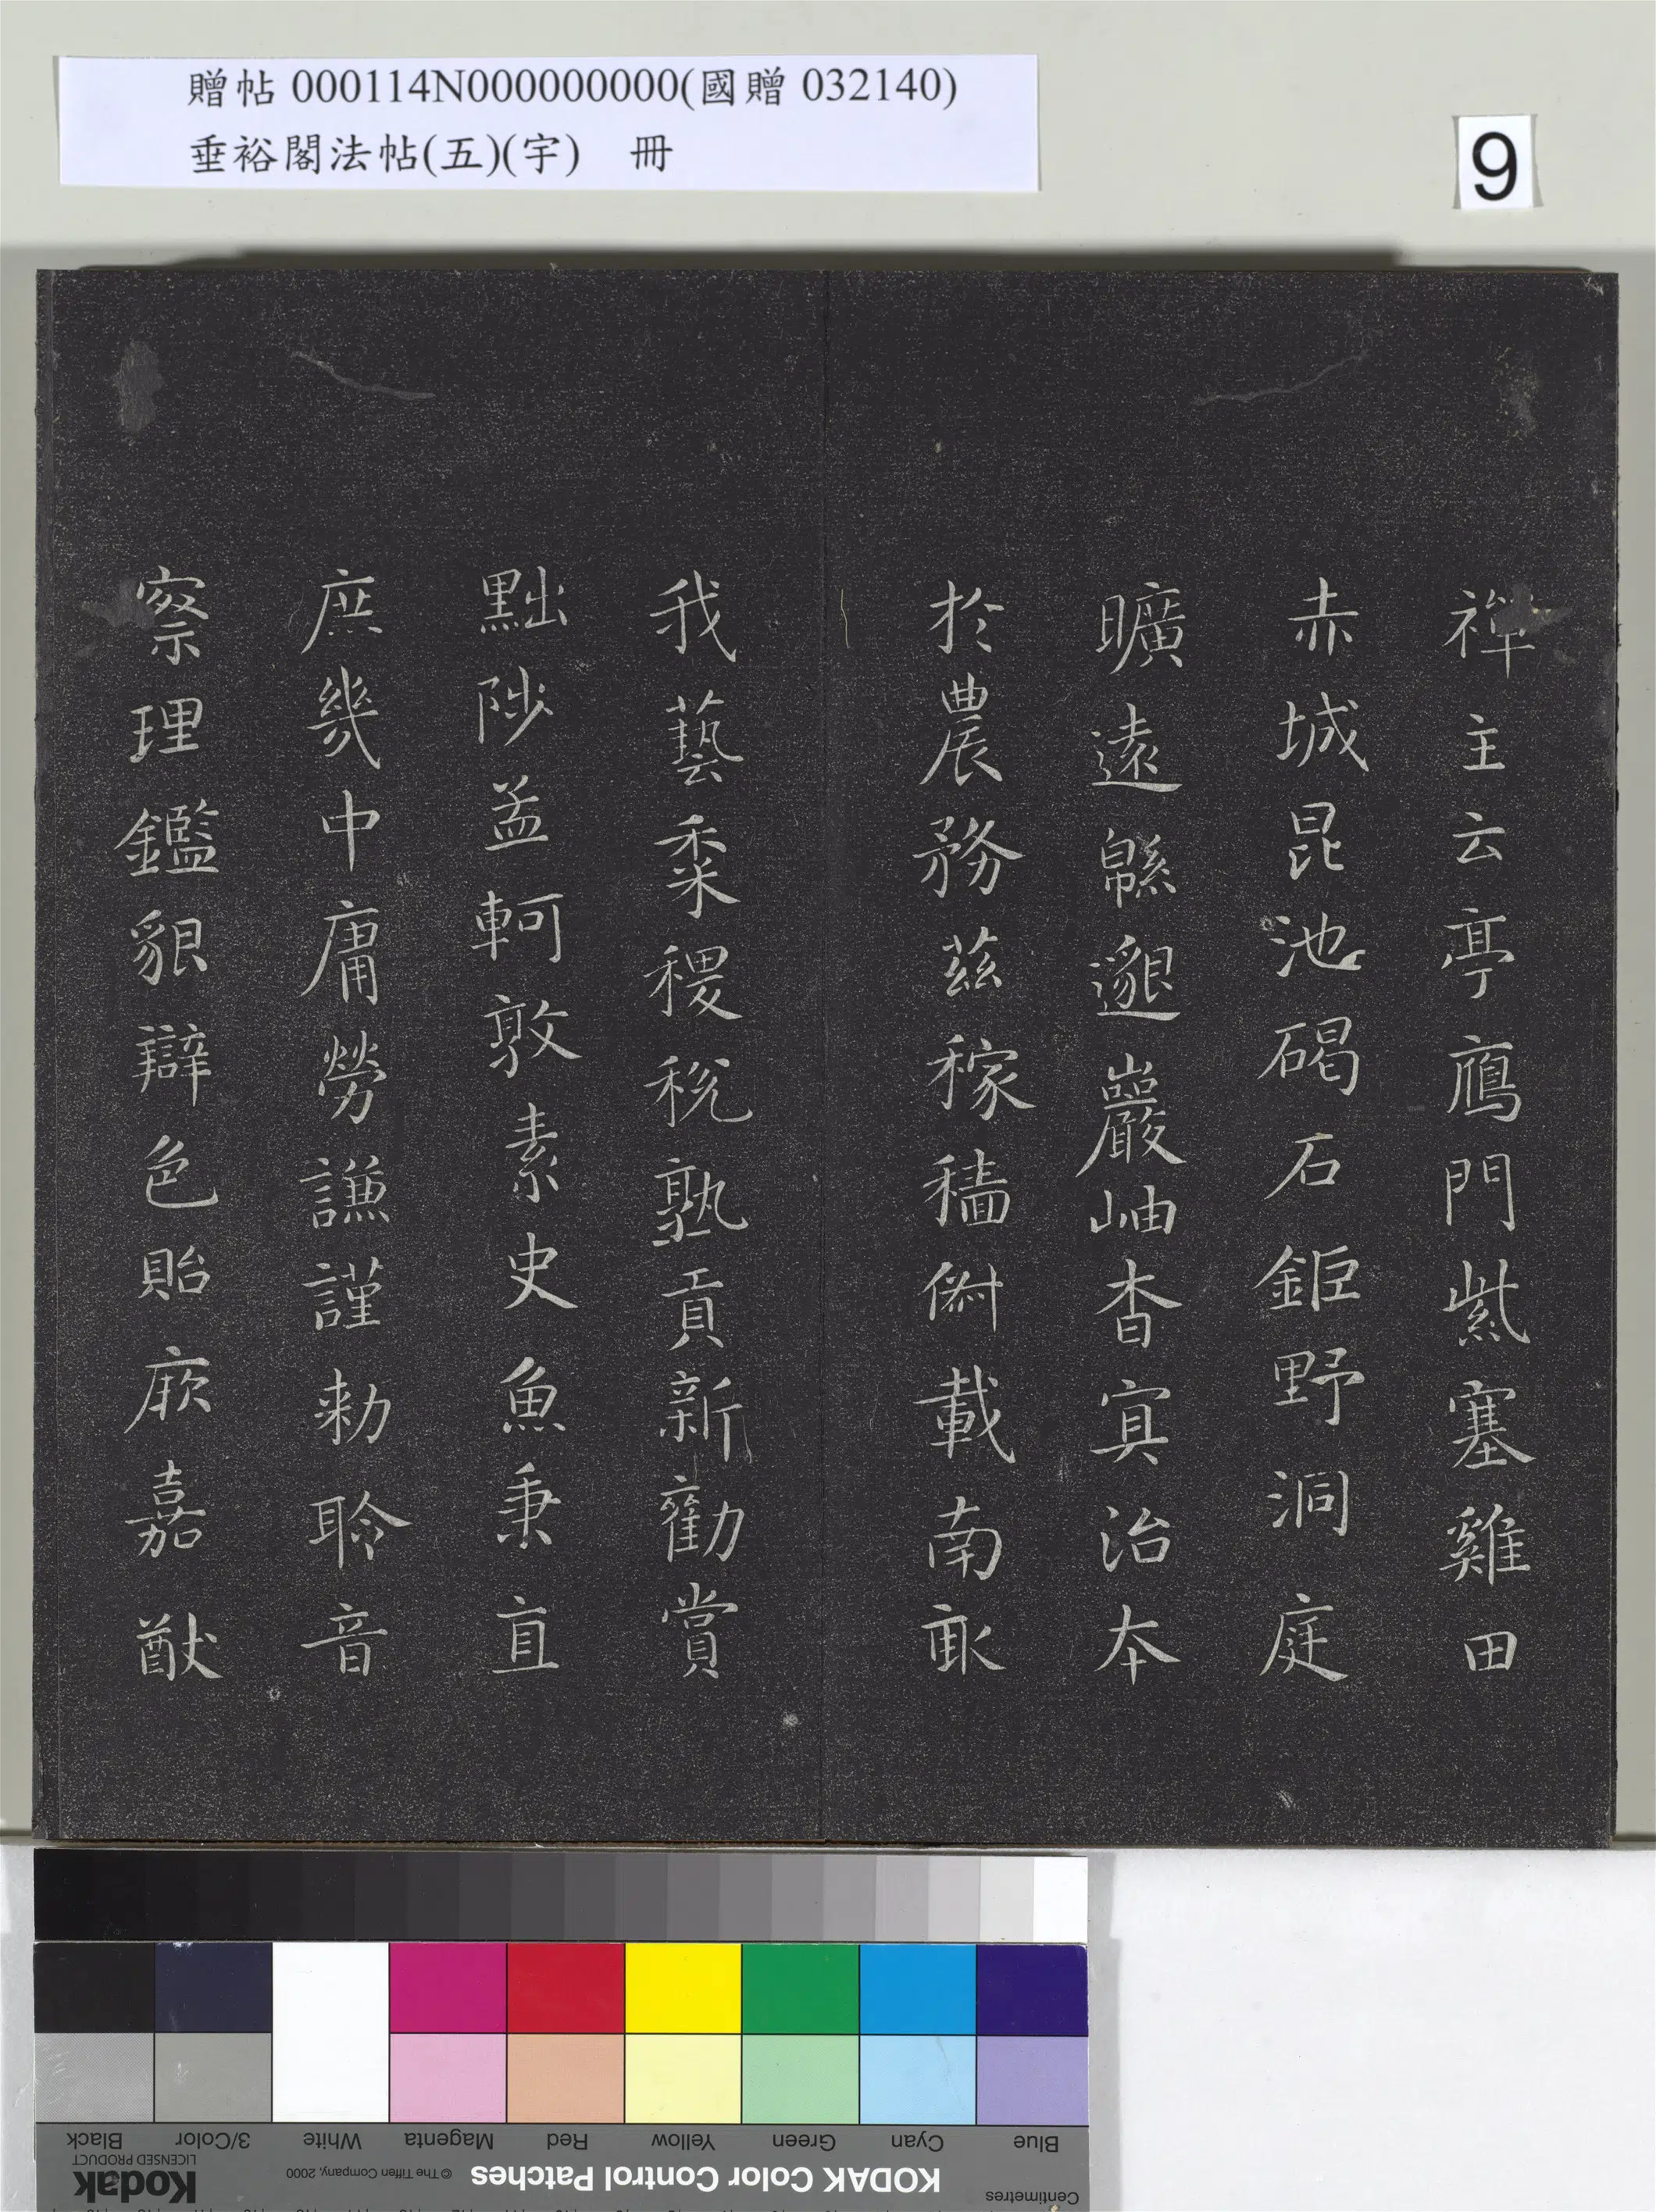 贈帖 000114N000000000(國贈 032140)
垂裕閣法帖(五)(宇) 冊
9
禪主云亭鴈門紫塞雞田
赤城昆池碣石鉅野洞庭
曠遠緜邈巖岫杳冥治本
於農務茲稼穡俶載南畝
我藝黍稷稅熟貢新勸賞
黜陟孟軻敦素史魚秉直
庶幾中庸勞謙謹勅聆音
察理鑑貌辯色貽厥嘉猷
Blue Cyan Green Yellow Red Magenta White 3/Color Black
Centimetres KODAK Color Control Patches © The Tiffen Company, 2000 Kodak
LICENSED PRODUCT